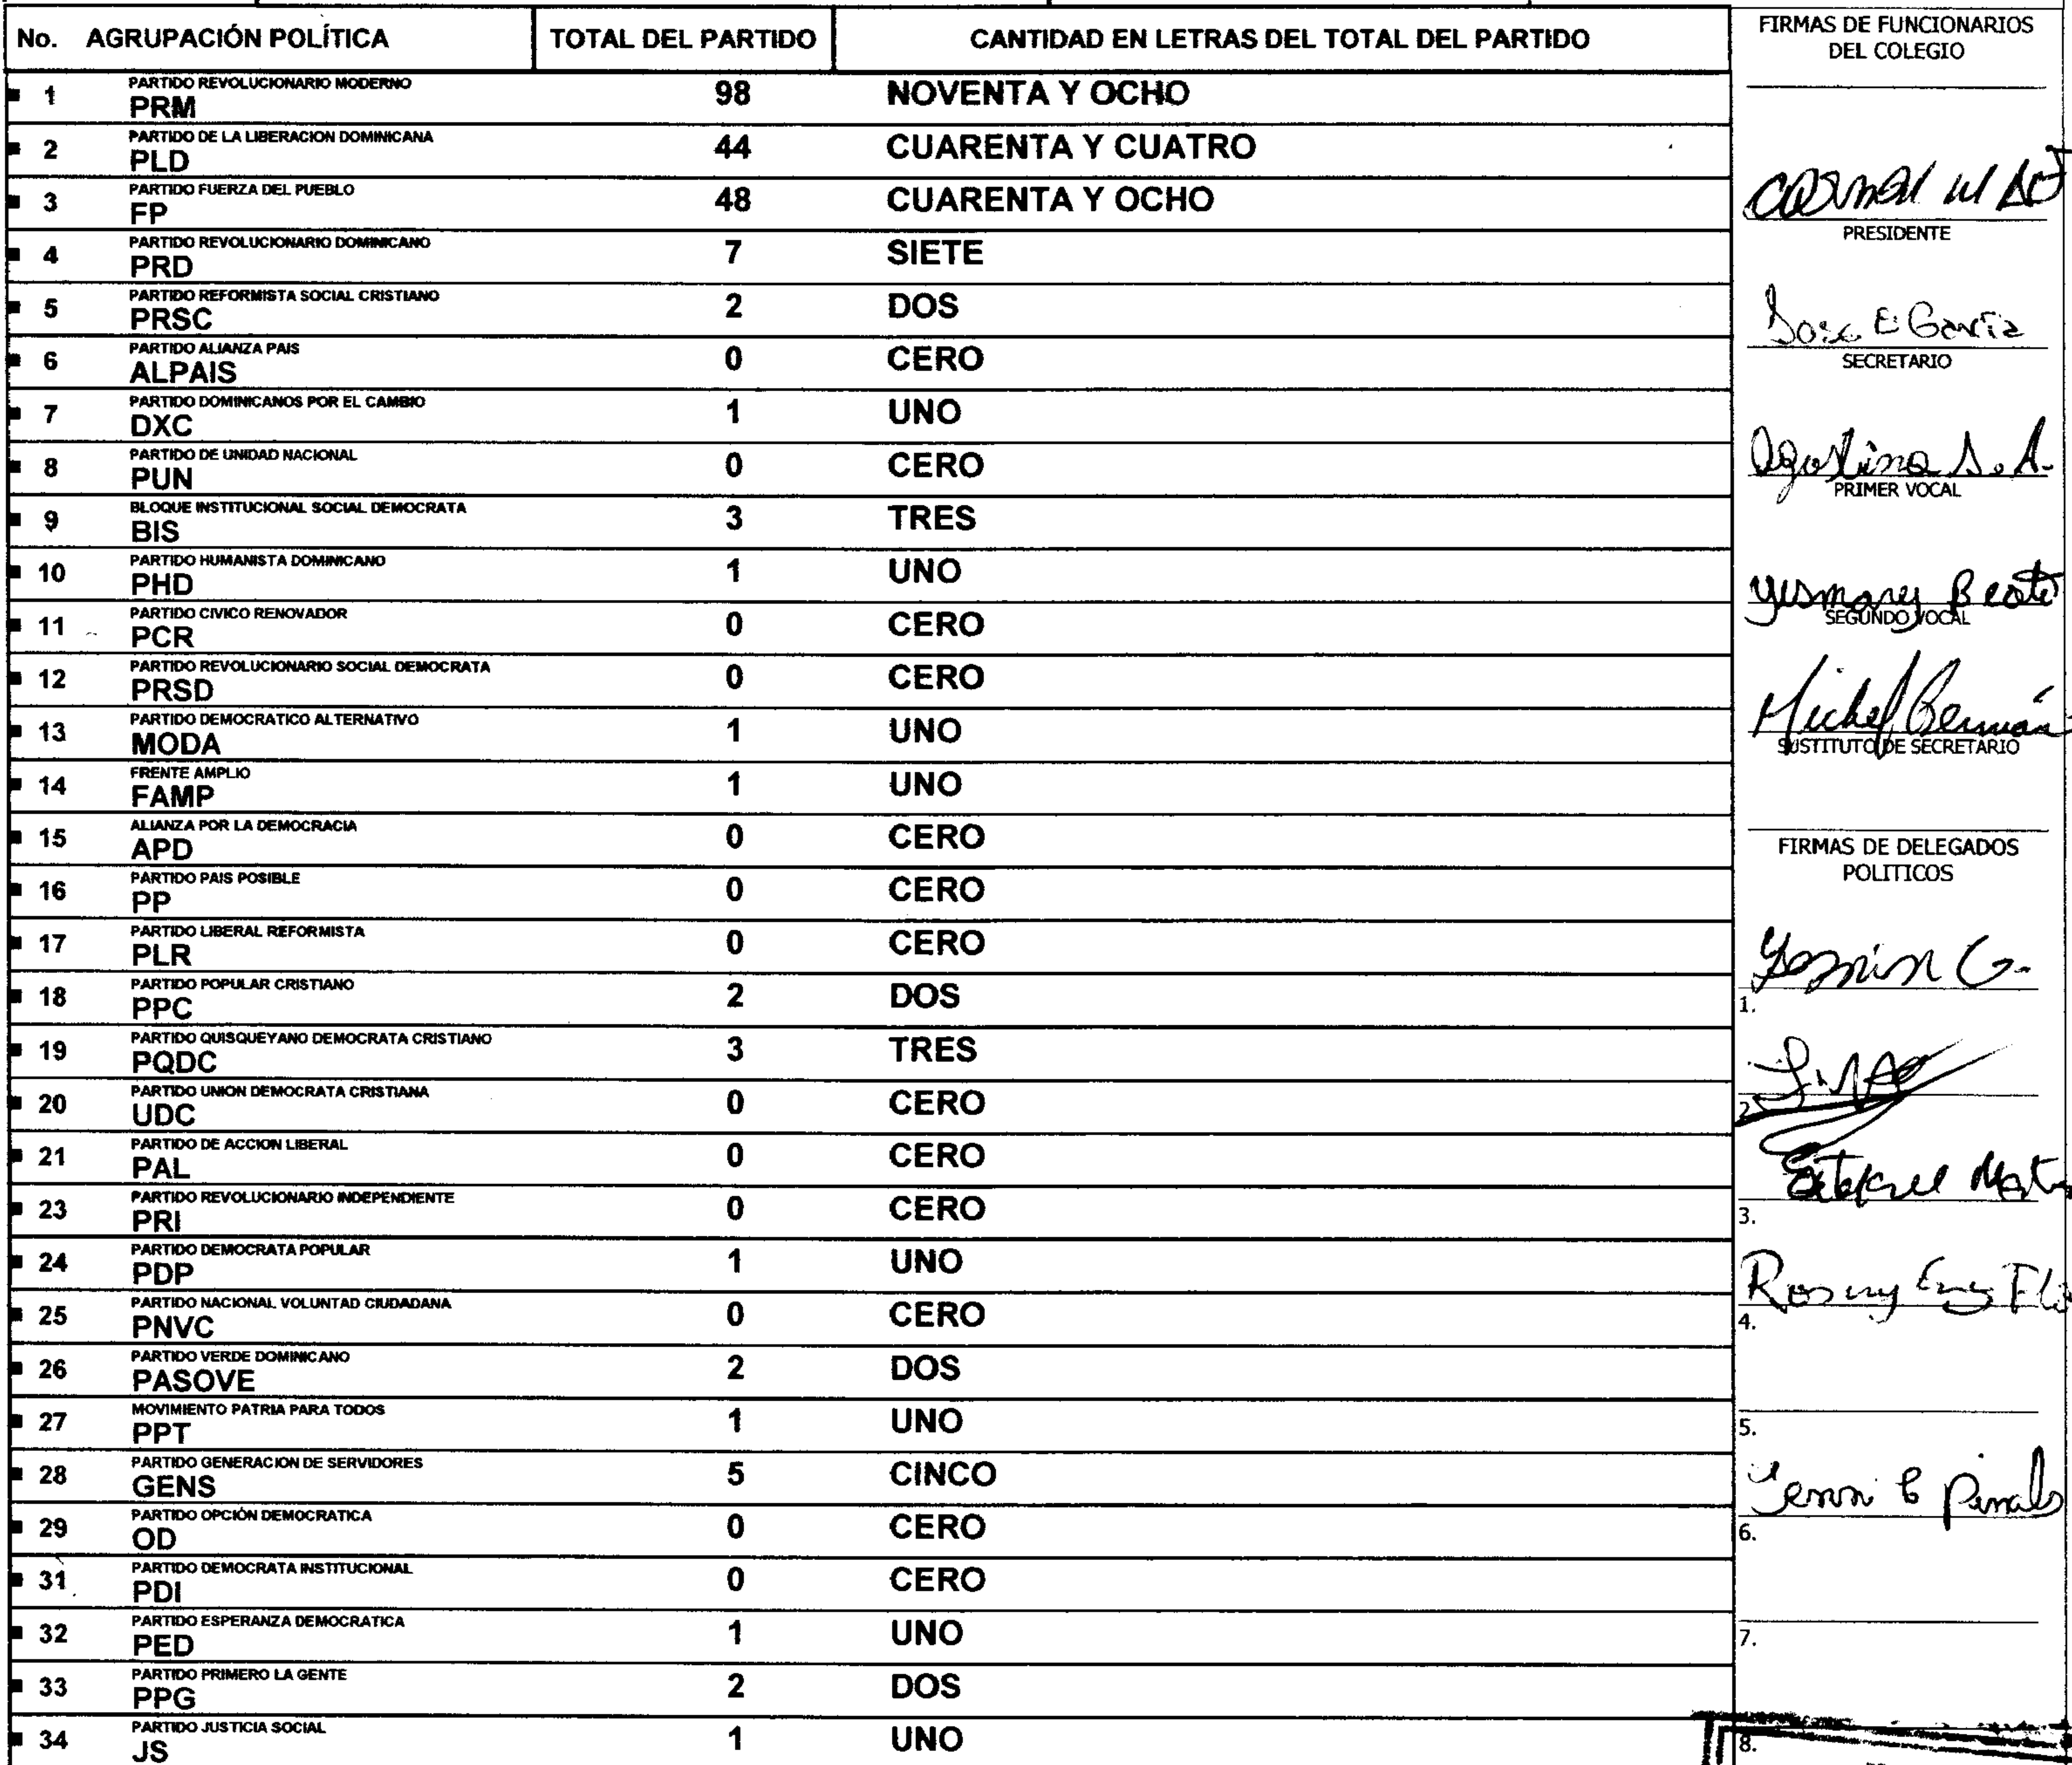 No. AGRUPACIÓN POLÍTICA TOTAL DEL PARTIDO CANTIDAD EN LETRAS DEL TOTAL DEL PARTIDO
PARTIDO REVOLUCIONARIO MODERNO
1 PRM 98 NOVENTA Y OCHO
PARTIDO DE LA LIBERACION DOMINICANA
2 PLD 44 CUARENTA Y CUATRO
PARTIDO FUERZA DEL PUEBLO
3 FP 48 CUARENTA Y OCHO
PARTIDO REVOLUCIONARIO DOMINICANO
4 PRD 7 SIETE
PARTIDO REFORMISTA SOCIAL CRISTIANO
5 PRSC 2 DOS
PARTIDO ALIANZA PAIS
6 ALPAIS 0 CERO
PARTIDO DOMINICANOS POR EL CAMBIO
7 DXC 1 UNO
PARTIDO DE UNIDAD NACIONAL
8 PUN 0 CERO
BLOQUE INSTITUCIONAL SOCIAL DEMOCRATA
9 BIS 3 TRES
PARTIDO HUMANISTA DOMINICANO
10 PHD 1 UNO
PARTIDO CIVICO RENOVADOR
11 PCR 0 CERO
PARTIDO REVOLUCIONARIO SOCIAL DEMOCRATA
12 PRSD 0 CERO
PARTIDO DEMOCRATICO ALTERNATIVO
13 MODA 1 UNO
FRENTE AMPLIO
14 FAMP 1 UNO
ALIANZA POR LA DEMOCRACIA
15 APD 0 CERO
PARTIDO PAIS POSIBLE
16 PP 0 CERO
PARTIDO LIBERAL REFORMISTA
17 PLR 0 CERO
PARTIDO POPULAR CRISTIANO
18 PPC 2 DOS
PARTIDO QUISQUEYANO DEMOCRATA CRISTIANO
19 PQDC 3 TRES
PARTIDO UNION DEMOCRATA CRISTIANA
20 UDC 0 CERO
PARTIDO DE ACCION LIBERAL
21 PAL 0 CERO
PARTIDO REVOLUCIONARIO INDEPENDIENTE
23 PRI 0 CERO
PARTIDO DEMOCRATA POPULAR
24 PDP 1 UNO
PARTIDO NACIONAL VOLUNTAD CIUDADANA
25 PNVC 0 CERO
PARTIDO VERDE DOMINICANO
26 PASOVE 2 DOS
MOVIMIENTO PATRIA PARA TODOS
27 PPT 1 UNO
PARTIDO GENERACION DE SERVIDORES
28 GENS 5 CINCO
PARTIDO OPCIÓN DEMOCRATICA
29 OD 0 CERO
PARTIDO DEMOCRATA INSTITUCIONAL
31 PDI 0 CERO
PARTIDO ESPERANZA DEMOCRATICA
32 PED 1 UNO
PARTIDO PRIMERO LA GENTE
33 PPG 2 DOS
PARTIDO JUSTICIA SOCIAL
34 JS 1 UNO
FIRMAS DE FUNCIONARIOS
DEL COLEGIO
PRESIDENTE
Jose E Garcia
SECRETARIO
Agostina
PRIMER VOCAL
Yusmary
SEGUNDO VOCAL
Michel Germán
SUSTITUTO DE SECRETARIO
FIRMAS DE DELEGADOS
POLITICOS
1.
2.
3.
4.
5.
6.
7.
8.